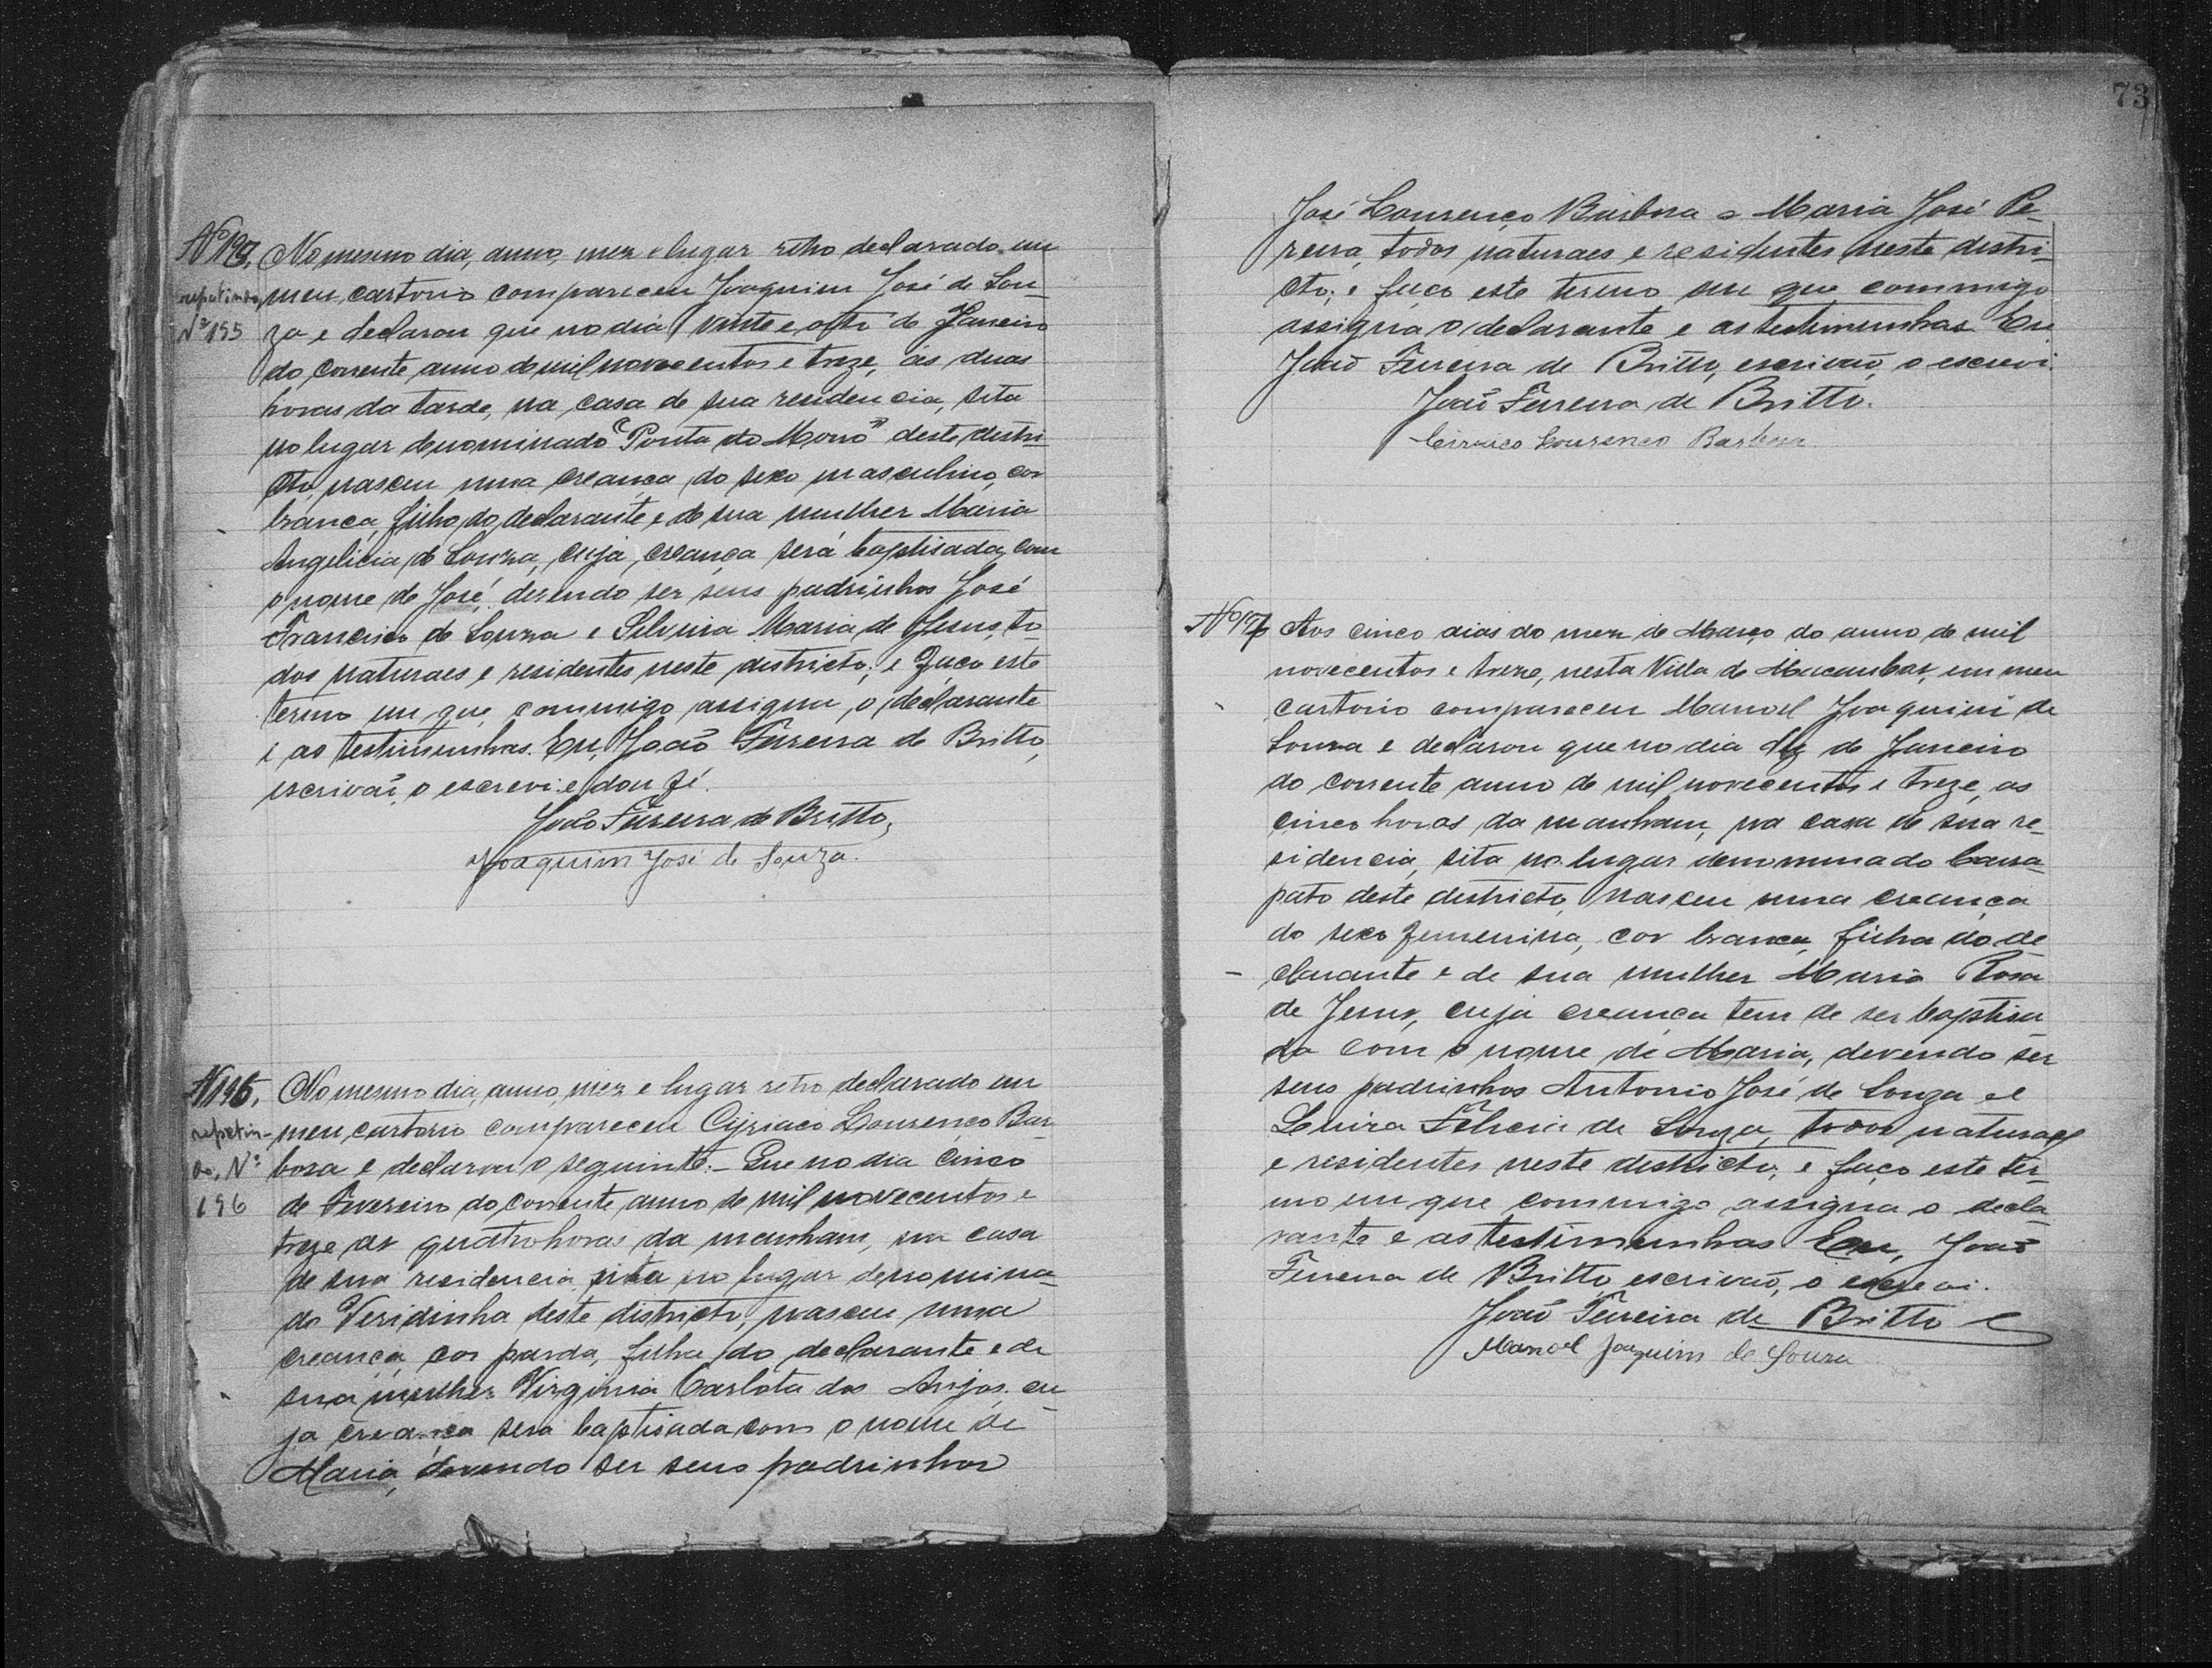 No mesmo dia, anno, mez e lugar retro declarado em
repetindo meu cartorio compareceu Joaquim José de Sou-
Nº 195 za e declarou que no dia vinte e oito de Janeiro
do corrente anno de mil novecentos e treze, ás duas
horas da tarde, na casa de sua residencia, sita
no lugar denominado "Ponta do Morro" deste distri-
cto, nasceu uma creança do sexo masculino, cor
branca, filho do declarante e de sua mulher Maria
Angelicia de Souza, cuja creança será baptisada com
o nome de José, devendo ser seus padrinhos José
Francisco de Souza e Silvina Maria de Jesus, to-
dos naturaes e residentes neste districto; e faço este
termo em que commigo assigna o declarante
e as testimunhas. Eu, João Ferreira de Britto,
escrivaõ, o escrevi e dou fé.
João Ferreira de Britto,
Joaquim José de Souza.
No mesmo dia, anno, mez e lugar retro declarado em
repetin- meu cartorio compareceu Cyriaco Lourenço Bar-
do, Nº boza e declarou o seguinte: - Que no dia cinco
196 de Fevereiro do corrente anno de mil novecentos e
treze as quatro horas da manham, na casa
de sua residencia sita no lugar denomina-
do Veridinha deste districto, nasceu uma
creança, cor parda, filha do declarante e de
sua mulher Virginia Carlota dos Anjos, cu-
ja creança será baptisada com o nome de
Maria, devendo ser seus padrinhos
73
José Lourenço Barbosa e Maria José Pe-
reira, todos naturaes e residentes neste distri-
cto; e faço este termo em que commigo
assigna o declarante e as testimunhas Eu
João Ferreira de Britto, escrivaõ, o escrevi.
João Ferreira de Britto.
Ciriaco Lourenco Barboza
Nº 197 Aos cinco dias do mez de Março do anno de mil
novecentos e treze, nesta Villa de Macaubas, em meu
cartorio compareceu Manoel Joaquim de
Souza e declarou que no dia dez de Janeiro
do corrente anno de mil novecentos e treze, as
cinco horas da manham, na casa de sua re-
sidencia, sita no lugar denominado Carra-
pato deste districto, nasceu uma creança
do sexo femenina, cor branca, filha do de-
clarante e de sua mulher Maria Rosa
de Jesus, cuja creança tem de ser baptisa-
da com o nome de Maria, devendo ser
seus padrinhos Antonio José de Souza e
Luiza Felicia de Souza, todos naturaes
e residentes neste districto; e faço este ter-
mo em que commigo assigna o decla-
rante e as testimunhas Eu, João
Ferreira de Britto, escrivaõ, o escrevi.
João Ferreira de Britto
Manoel Joaquim de Souza